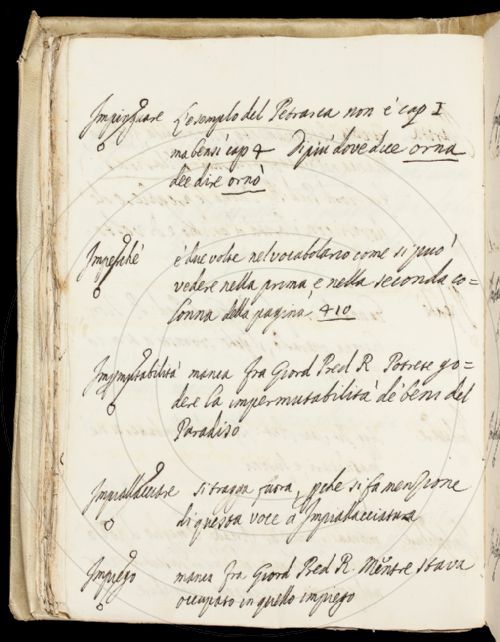 L'esemplo del Petrarca non è cap I
ma bensi cap 4 Di più dove dice orna
dee dire ornò
è due volte nel vocabolario come si può
vedere nella prima, e nella seconda co=
lonna della pagina 410
manca fra Giord Pred R Potrete go=
dere la impermutabilità de' beni del
Paradiso
si tragga fuora, si fa menzione
di questa voce a Impiallacciatura
Impiego manca fra Giord Pred R. Mentre stava
occupato in quello impiego